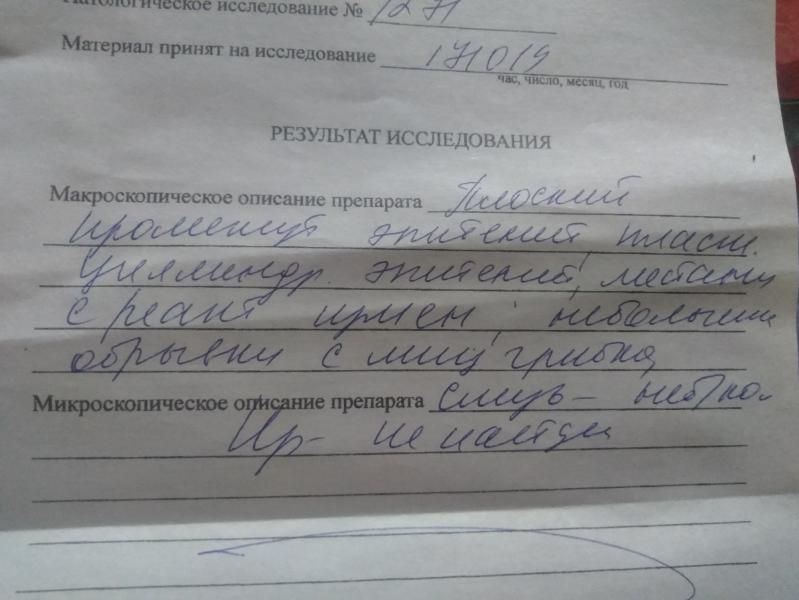 Патологическое исследование № 1271
Материал принят на исследование 171019
час, число, месяц, год
РЕЗУЛЬТАТ ИССЛЕДОВАНИЯ
Макроскопическое описание препарата Плоский
промежут эпителий, пласт.
цилиндр. эпителий, местами
с реакт измен, небольшие
обрывки с миц грибка,
Микроскопическое описание препарата слизь – неб/кол